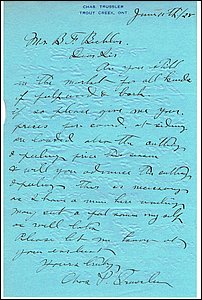 CHAS. TRUSSLER
TROUT CREEK, ONT.
June 11th/28
Mr. B. F.
Dear Sir
Are you still
in the market for all kinds
of pulpwood & bark
if so please give me your
prices per cord at siding
on loaded also the cutting
& peeling price
& will you advance the cutting
& peeling This is necessary
as I have a man here waiting
may cut a few hours my self
as well later
Please let me know at
your earliest
Yours truly
Chas P. Trussler